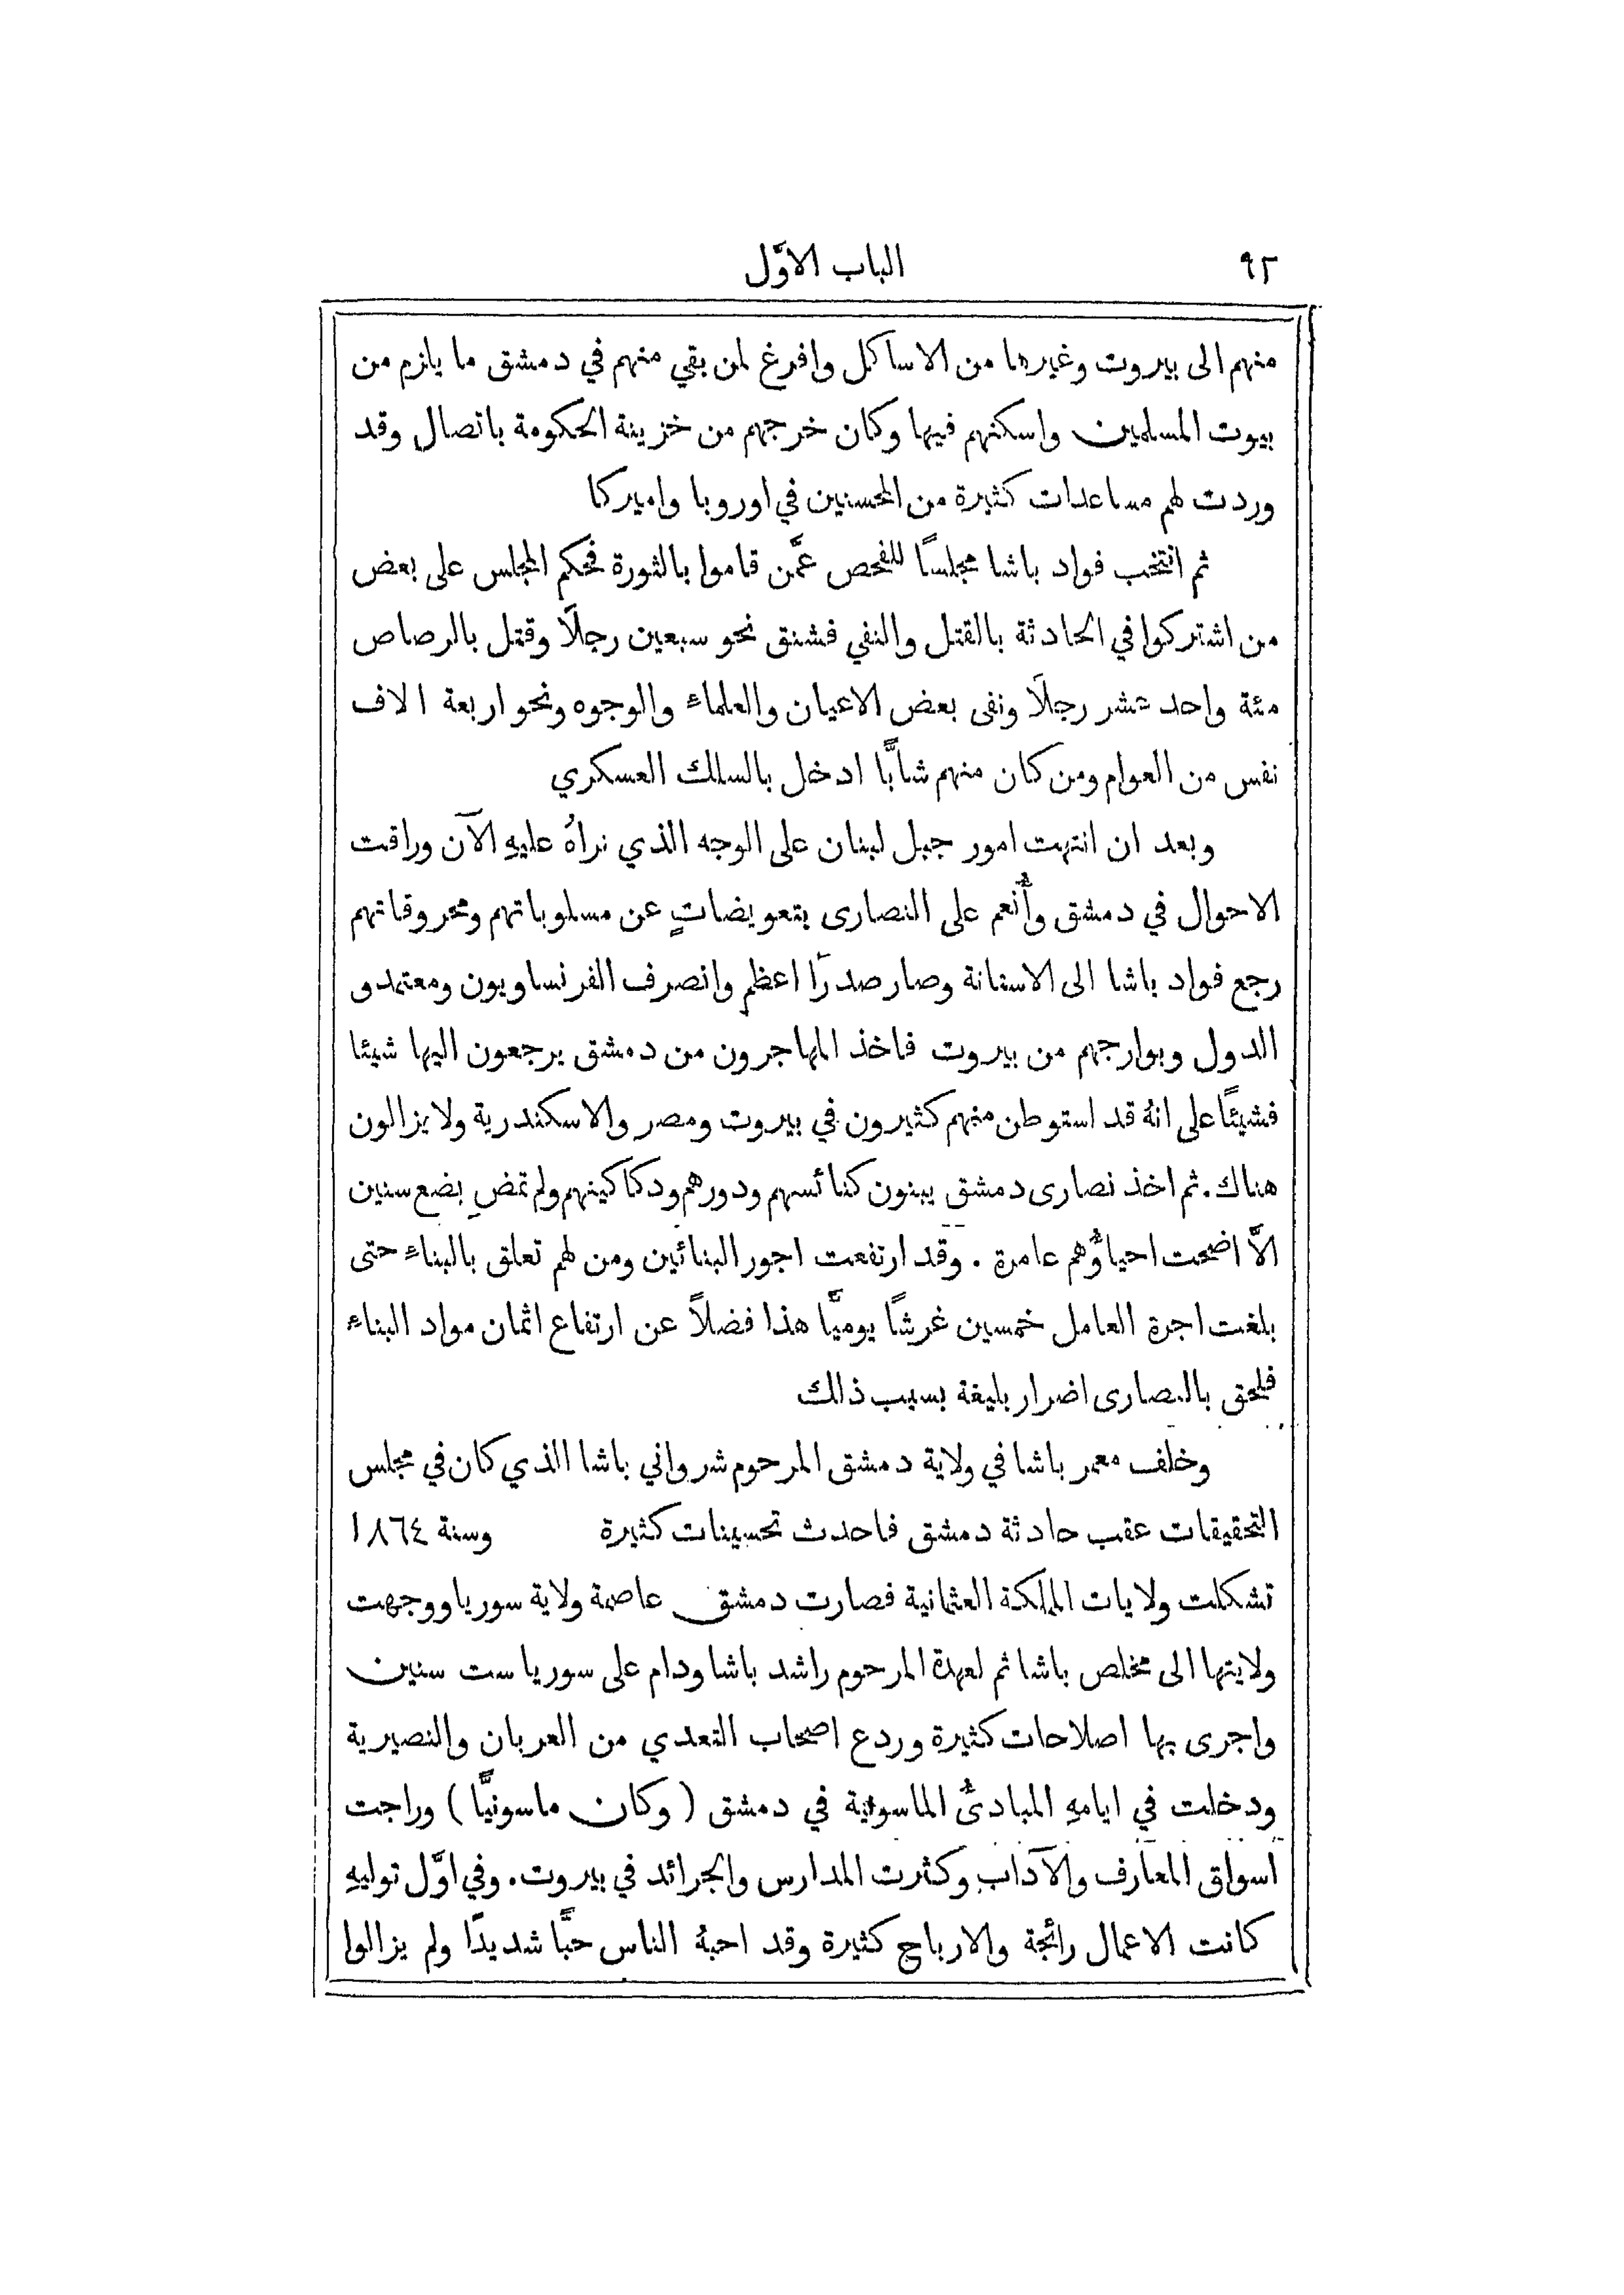 ٩٢ الباب الاوَّل
منهم الى بيروت وغيرها من الاساكل وافرغ لمن بقي منهم في دمشق ما يلزم من
بيوت المسلمين واسكنهم فيها وكان خرجهم من خزينة الحكومة باتصال وقد
وردت لهم مساعدات كثيرة من المحسنين في اوروبا واميركا
ثم انتخب فواد باشا مجلسًا للفحص عمَّن قاموا بالثورة فحكم المجلس على بعض
من اشتركوا في الحادثة بالقتل والنفي فشنق نحو سبعين رجلًا وقتل بالرصاص
مئة واحد عشر رجلًا ونفى بعض الاعيان والعلماء والوجوه ونحو اربعة الاف
نفس من العوام ومن كان منهم شابًّا ادخل بالسلك العسكري
وبعد ان انتهت امور جبل لبنان على الوجه الذي نراهُ عليهِ الآن وراقت
الاحوال في دمشق وأُنعم على النصارى بتعويضاتٍ عن مسلوباتهم ومحروقاتهم
رجع فواد باشا الى الاستانة وصار صدرًا اعظم وانصرف الفرنساويون ومعتمدو
الدول وبوارجهم من بيروت فاخذ المهاجرون من دمشق يرجعون اليها شيئا
فشيئًا على انهُ قد استوطن منهم كثيرون في بيروت ومصر والاسكندرية ولا يزالون
هناك. ثم اخذ نصارى دمشق يبنون كنائسهم ودورهم ودكاكينهم ولم تمضِ بضع سنين
الَّا اضحت احياؤُهم عامرة . وقد ارتفعت اجور البنائين ومن لهم تعلق بالبناء حتى
بلغت اجرة العامل خمسين غرشًا يوميًّا هذا فضلًا عن ارتفاع اثمان مواد البناء
فلحق بالنصارى اضرار بليغة بسبب ذلك
وخلف معمر باشا في ولاية دمشق المرحوم شرواني باشا الذي كان في مجلس
التحقيقات عقب حادثة دمشق فاحدث تحسينات كثيرة وسنة ١٨٦٤
تشكلت ولايات المملكة العثمانية فصارت دمشق عاصمة ولاية سوريا ووجهت
ولايتها الى مخلص باشا ثم لعهدة المرحوم راشد باشا ودام على سوريا ست سنين
واجرى بها اصلاحات كثيرة وردع اصحاب التعدي من العربان والنصيرية
ودخلت في ايامهِ المبادئُ الماسونية في دمشق ( وكان ماسونيًّا ) وراجت
اسواق المعارف والآداب وكثرت المدارس والجرائد في بيروت. وفي اوَّل توليهِ
كانت الاعمال رائجة والارباح كثيرة وقد احبهُ الناس حبًّا شديدًا ولم يزالوا